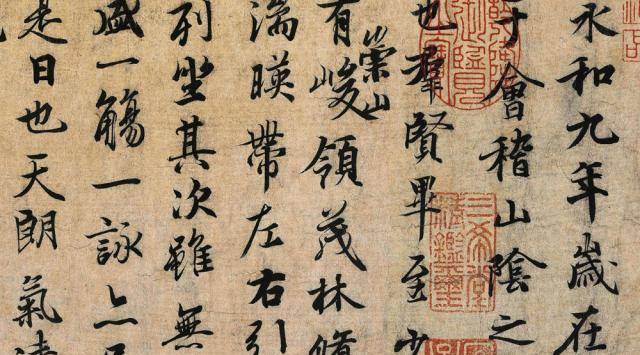 永和九年歲在
于會稽山陰之
也羣賢畢至少
有崇山峻領茂林脩
湍暎帶左右引
列坐其次雖無
盛一觴一詠亦足
是日也天朗氣清
三希堂
精鑑璽